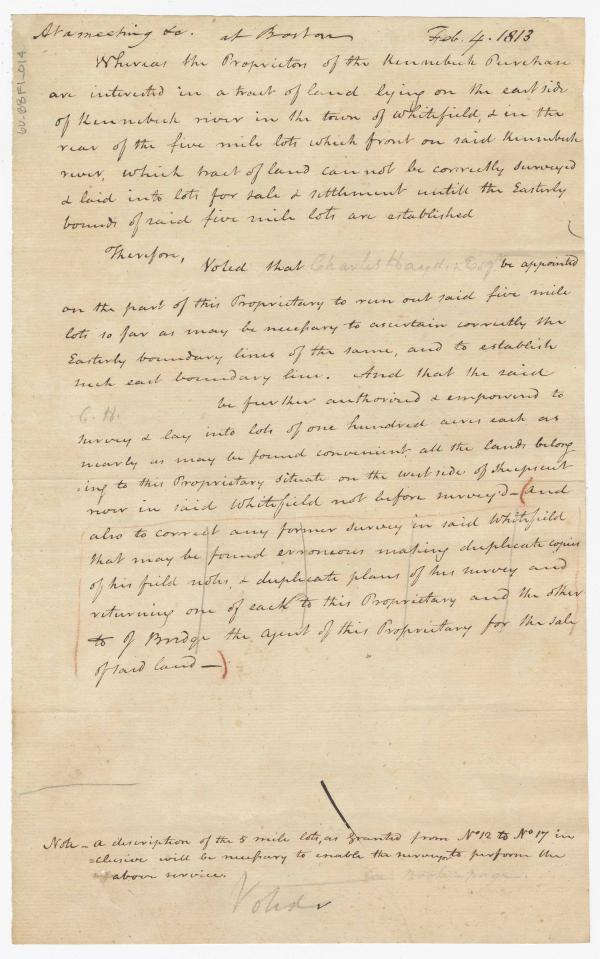 At a meeting &c. at Boston Feb. 4. 1813
Whereas the Proprietors of the Kennebeck Purchase
are interested in a tract of land lying on the east side
of Kennebeck river in the town of Whitefield, & in the
rear of the five mile lots which front on said Kennebeck
river, which tract of land can not be correctly surveyed
& laid into lots for sale & settlement untill the Easterly
bounds of said five mile lots are established
Therefore,
Voted that Charles Hayden Esqr be appointed
on the part of this Proprietary to run out said five mile
lots so far as may be necessary to ascertain correctly the
Easterly boundary lines of the same, and to establish
such east boundary line. And that the said
C. H. be further authorized & empowered to
survey & lay into lots of one hundred acres each as
nearly as may be found convenient all the lands belong
ing to this Proprietary situate on the west side of Sheepscut
river in said Whitefield not before survey'd — (And
also to correct any former survey in said Whitefield
that may be found erroneous making duplicate copies
of his field notes, & duplicate plans of his survey and
returning one of each to this Proprietary and the other
to Bridge the agent of this Proprietary for the sale
of said land —)
Note — a description of the 5 mile lots, as granted from No 12 to No 17 in
clusive will be necessary to enable the surveyor to perform the
above service. See Book page
Voted
6U-88F1-014